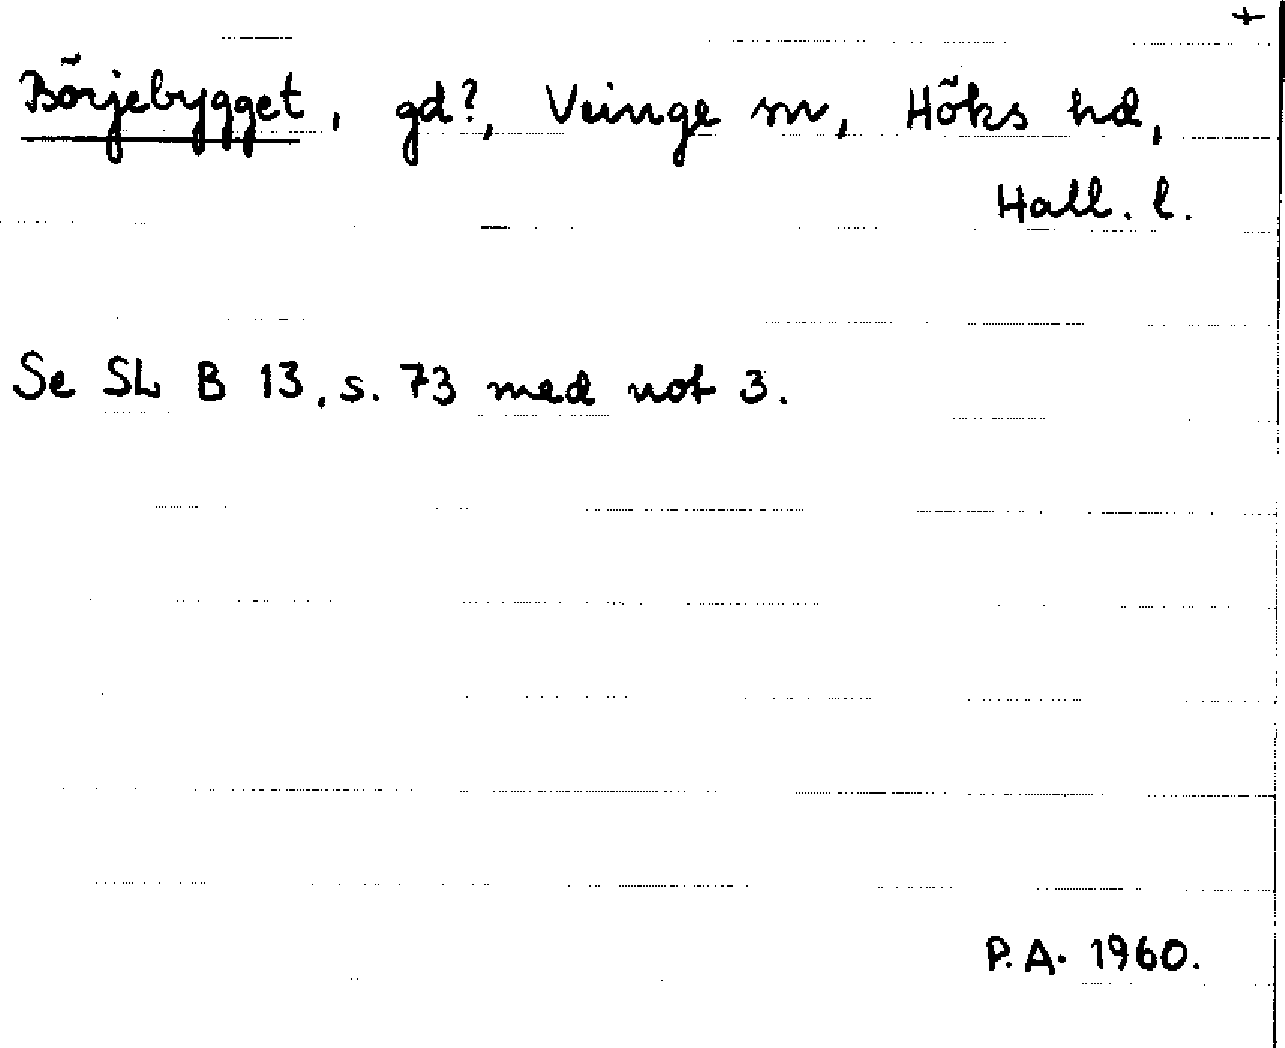 +
Börjebygget, gd?, Veinge sn, Höks hd,
Hall. l.
Se SL B 13, s. 73 med not 3.
P.A. 1960.